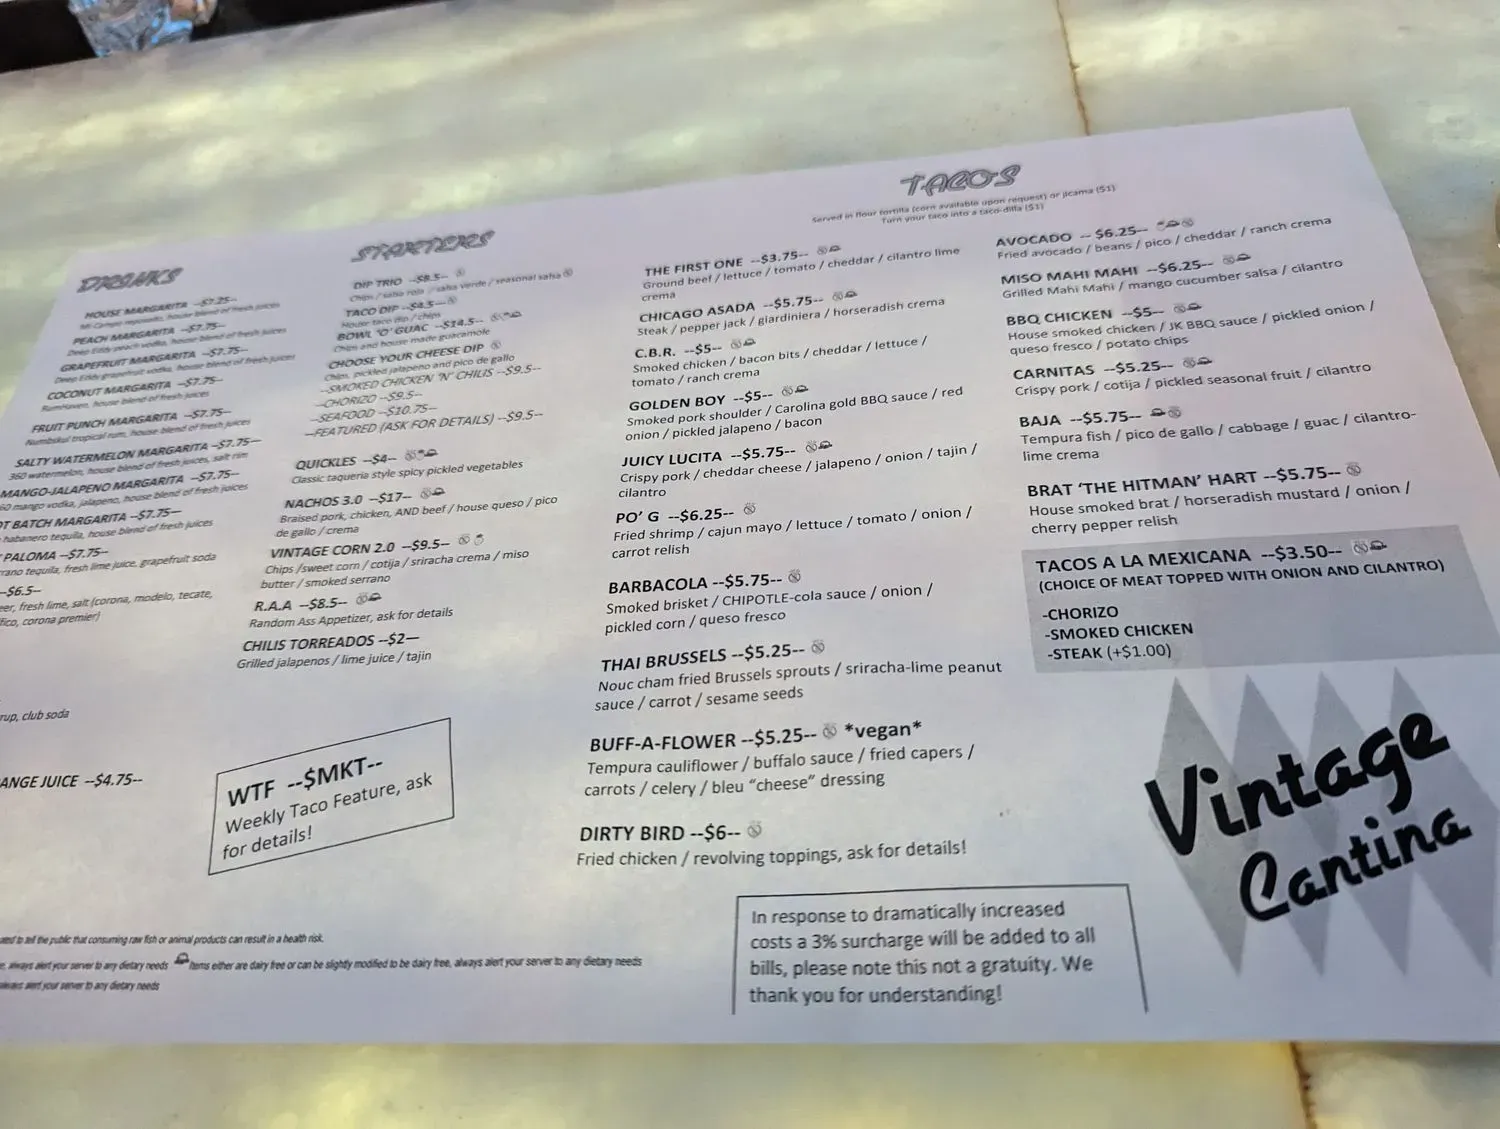 DRINKS
HOUSE MARGARITA --$7.25--
Mi Campo reposado, house blend of fresh juices
PEACH MARGARITA --$7.75--
Deep Eddy peach vodka, house blend of fresh juices
GRAPEFRUIT MARGARITA --$7.75--
Deep Eddy grapefruit vodka, house blend of fresh juices
COCONUT MARGARITA --$7.75--
RumHaven, house blend of fresh juices
FRUIT PUNCH MARGARITA --$7.75--
tropical rum, house blend of fresh juices
SALTY WATERMELON MARGARITA --$7.75--
360 watermelon, house blend of fresh juices, salt rim
MANGO-JALAPENO MARGARITA --$7.75--
60 mango vodka, jalapeno, house blend of fresh juices
OT BATCH MARGARITA --$7.75--
habanero tequila, house blend of fresh juices
PALOMA --$7.75--
rano tequila, fresh lime juice, grapefruit soda
--$6.5--
eer, fresh lime, salt (corona, modelo, tecate,
fico, corona premier)
rup, club soda
ANGE JUICE --$4.75--
STARTERS
DIP TRIO --$8.5--
Chips / salsa roja / salsa verde / seasonal salsa
TACO DIP --$4.5--
House taco dip / chips
BOWL 'O' GUAC --$14.5--
Chips and house made guacamole
CHOOSE YOUR CHEESE DIP
Chips, pickled jalapeno and pico de gallo
--SMOKED CHICKEN 'N' CHILIS --$9.5--
--CHORIZO --$9.5--
--SEAFOOD --$10.75--
--FEATURED (ASK FOR DETAILS) --$9.5--
QUICKLES --$4--
Classic taqueria style spicy pickled vegetables
NACHOS 3.0 --$17--
Braised pork, chicken, AND beef / house queso / pico
de gallo / crema
VINTAGE CORN 2.0 --$9.5--
Chips /sweet corn / cotija / sriracha crema / miso
butter / smoked serrano
R.A.A --$8.5--
Random Ass Appetizer, ask for details
CHILIS TORREADOS --$2—
Grilled jalapenos / lime juice / tajin
WTF --$MKT--
Weekly Taco Feature, ask
for details!
TACOS
Served in flour tortilla (corn available upon request) or jicama ($1)
Turn your taco into a taco-dilla ($1)
THE FIRST ONE --$3.75--
Ground beef / lettuce / tomato / cheddar / cilantro lime
crema
CHICAGO ASADA --$5.75--
Steak / pepper jack / giardiniera / horseradish crema
C.B.R. --$5--
Smoked chicken / bacon bits / cheddar / lettuce /
tomato / ranch crema
GOLDEN BOY --$5--
Smoked pork shoulder / Carolina gold BBQ sauce / red
onion / pickled jalapeno / bacon
JUICY LUCITA --$5.75--
Crispy pork / cheddar cheese / jalapeno / onion / tajin /
cilantro
PO' G --$6.25--
Fried shrimp / cajun mayo / lettuce / tomato / onion /
carrot relish
BARBACOLA --$5.75--
Smoked brisket / CHIPOTLE-cola sauce / onion /
pickled corn / queso fresco
THAI BRUSSELS --$5.25--
Nouc cham fried Brussels sprouts / sriracha-lime peanut
sauce / carrot / sesame seeds
BUFF-A-FLOWER --$5.25-- *vegan*
Tempura cauliflower / buffalo sauce / fried capers /
carrots / celery / bleu "cheese" dressing
DIRTY BIRD --$6--
Fried chicken / revolving toppings, ask for details!
AVOCADO -- $6.25--
Fried avocado / beans / pico / cheddar / ranch crema
MISO MAHI MAHI --$6.25--
Grilled Mahi Mahi / mango cucumber salsa / cilantro
BBQ CHICKEN --$5--
House smoked chicken / JK BBQ sauce / pickled onion /
queso fresco / potato chips
CARNITAS --$5.25--
Crispy pork / cotija / pickled seasonal fruit / cilantro
BAJA --$5.75--
Tempura fish / pico de gallo / cabbage / guac / cilantro-
lime crema
BRAT 'THE HITMAN' HART --$5.75--
House smoked brat / horseradish mustard / onion /
cherry pepper relish
TACOS A LA MEXICANA --$3.50--
(CHOICE OF MEAT TOPPED WITH ONION AND CILANTRO)
-CHORIZO
-SMOKED CHICKEN
-STEAK (+$1.00)
Vintage
Cantina
In response to dramatically increased
costs a 3% surcharge will be added to all
bills, please note this not a gratuity. We
thank you for understanding!
ated to tell the public that consuming raw fish or animal products can result in a health risk.
e, always alert your server to any dietary needs items either are dairy free or can be slightly modified to be dairy free, always alert your server to any dietary needs
always alert your server to any dietary needs